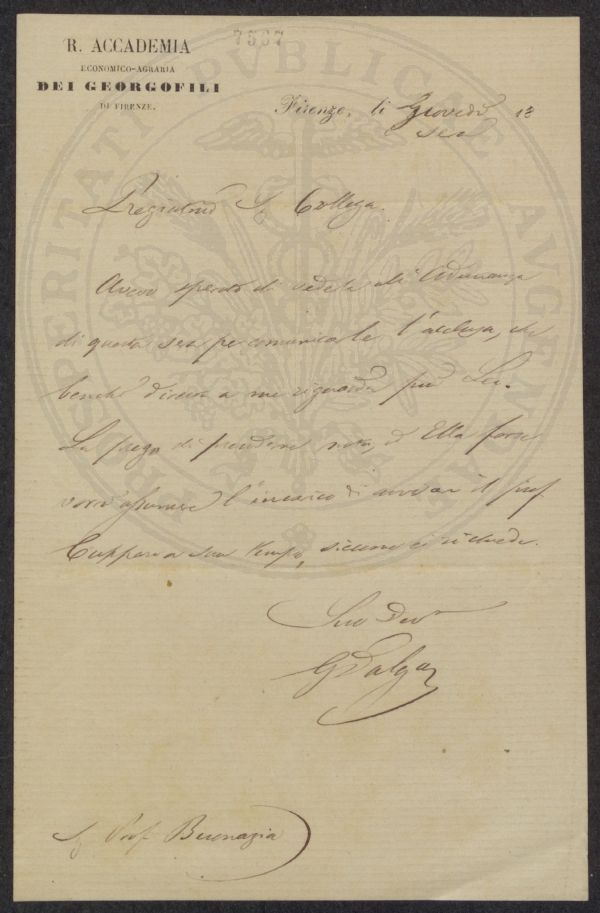 7567
R. ACCADEMIA
ECONOMICO-AGRARIA
DEI GEORGOFILI
DI FIRENZE.
Firenze, li Giovedì 18
sera
Pregiatmo Sig Collega.
Avevo sperato di vederla all'Adunanza
di questa sera per comunicarle l'acclusa, che
benchè diretta a me riguarda più Lei.
La prego di prendere nota, ed Ella forse
vorrà assumere l'incarico di avvisar il prof.
Cuppari a suo tempo, siccome ei richiede.
Suo Devmo
G Dalgas
Sig Prof. Buonazia
PROSPERITATI PUBLICAE AUGENDAE